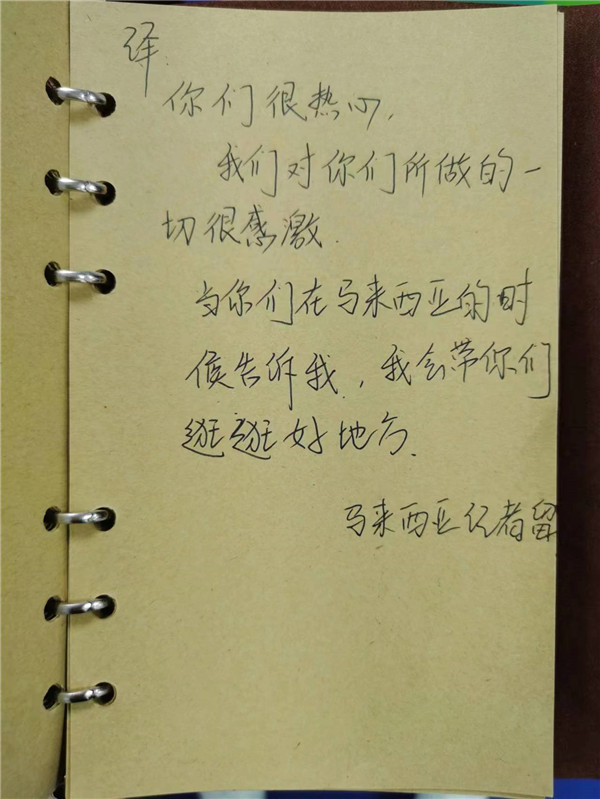 译
你们很热心,
我们对你们所做的一
切很感激.
当你们在马来西亚的时
候告诉我,我会带你们
逛逛好地方.
马来西亚记者留